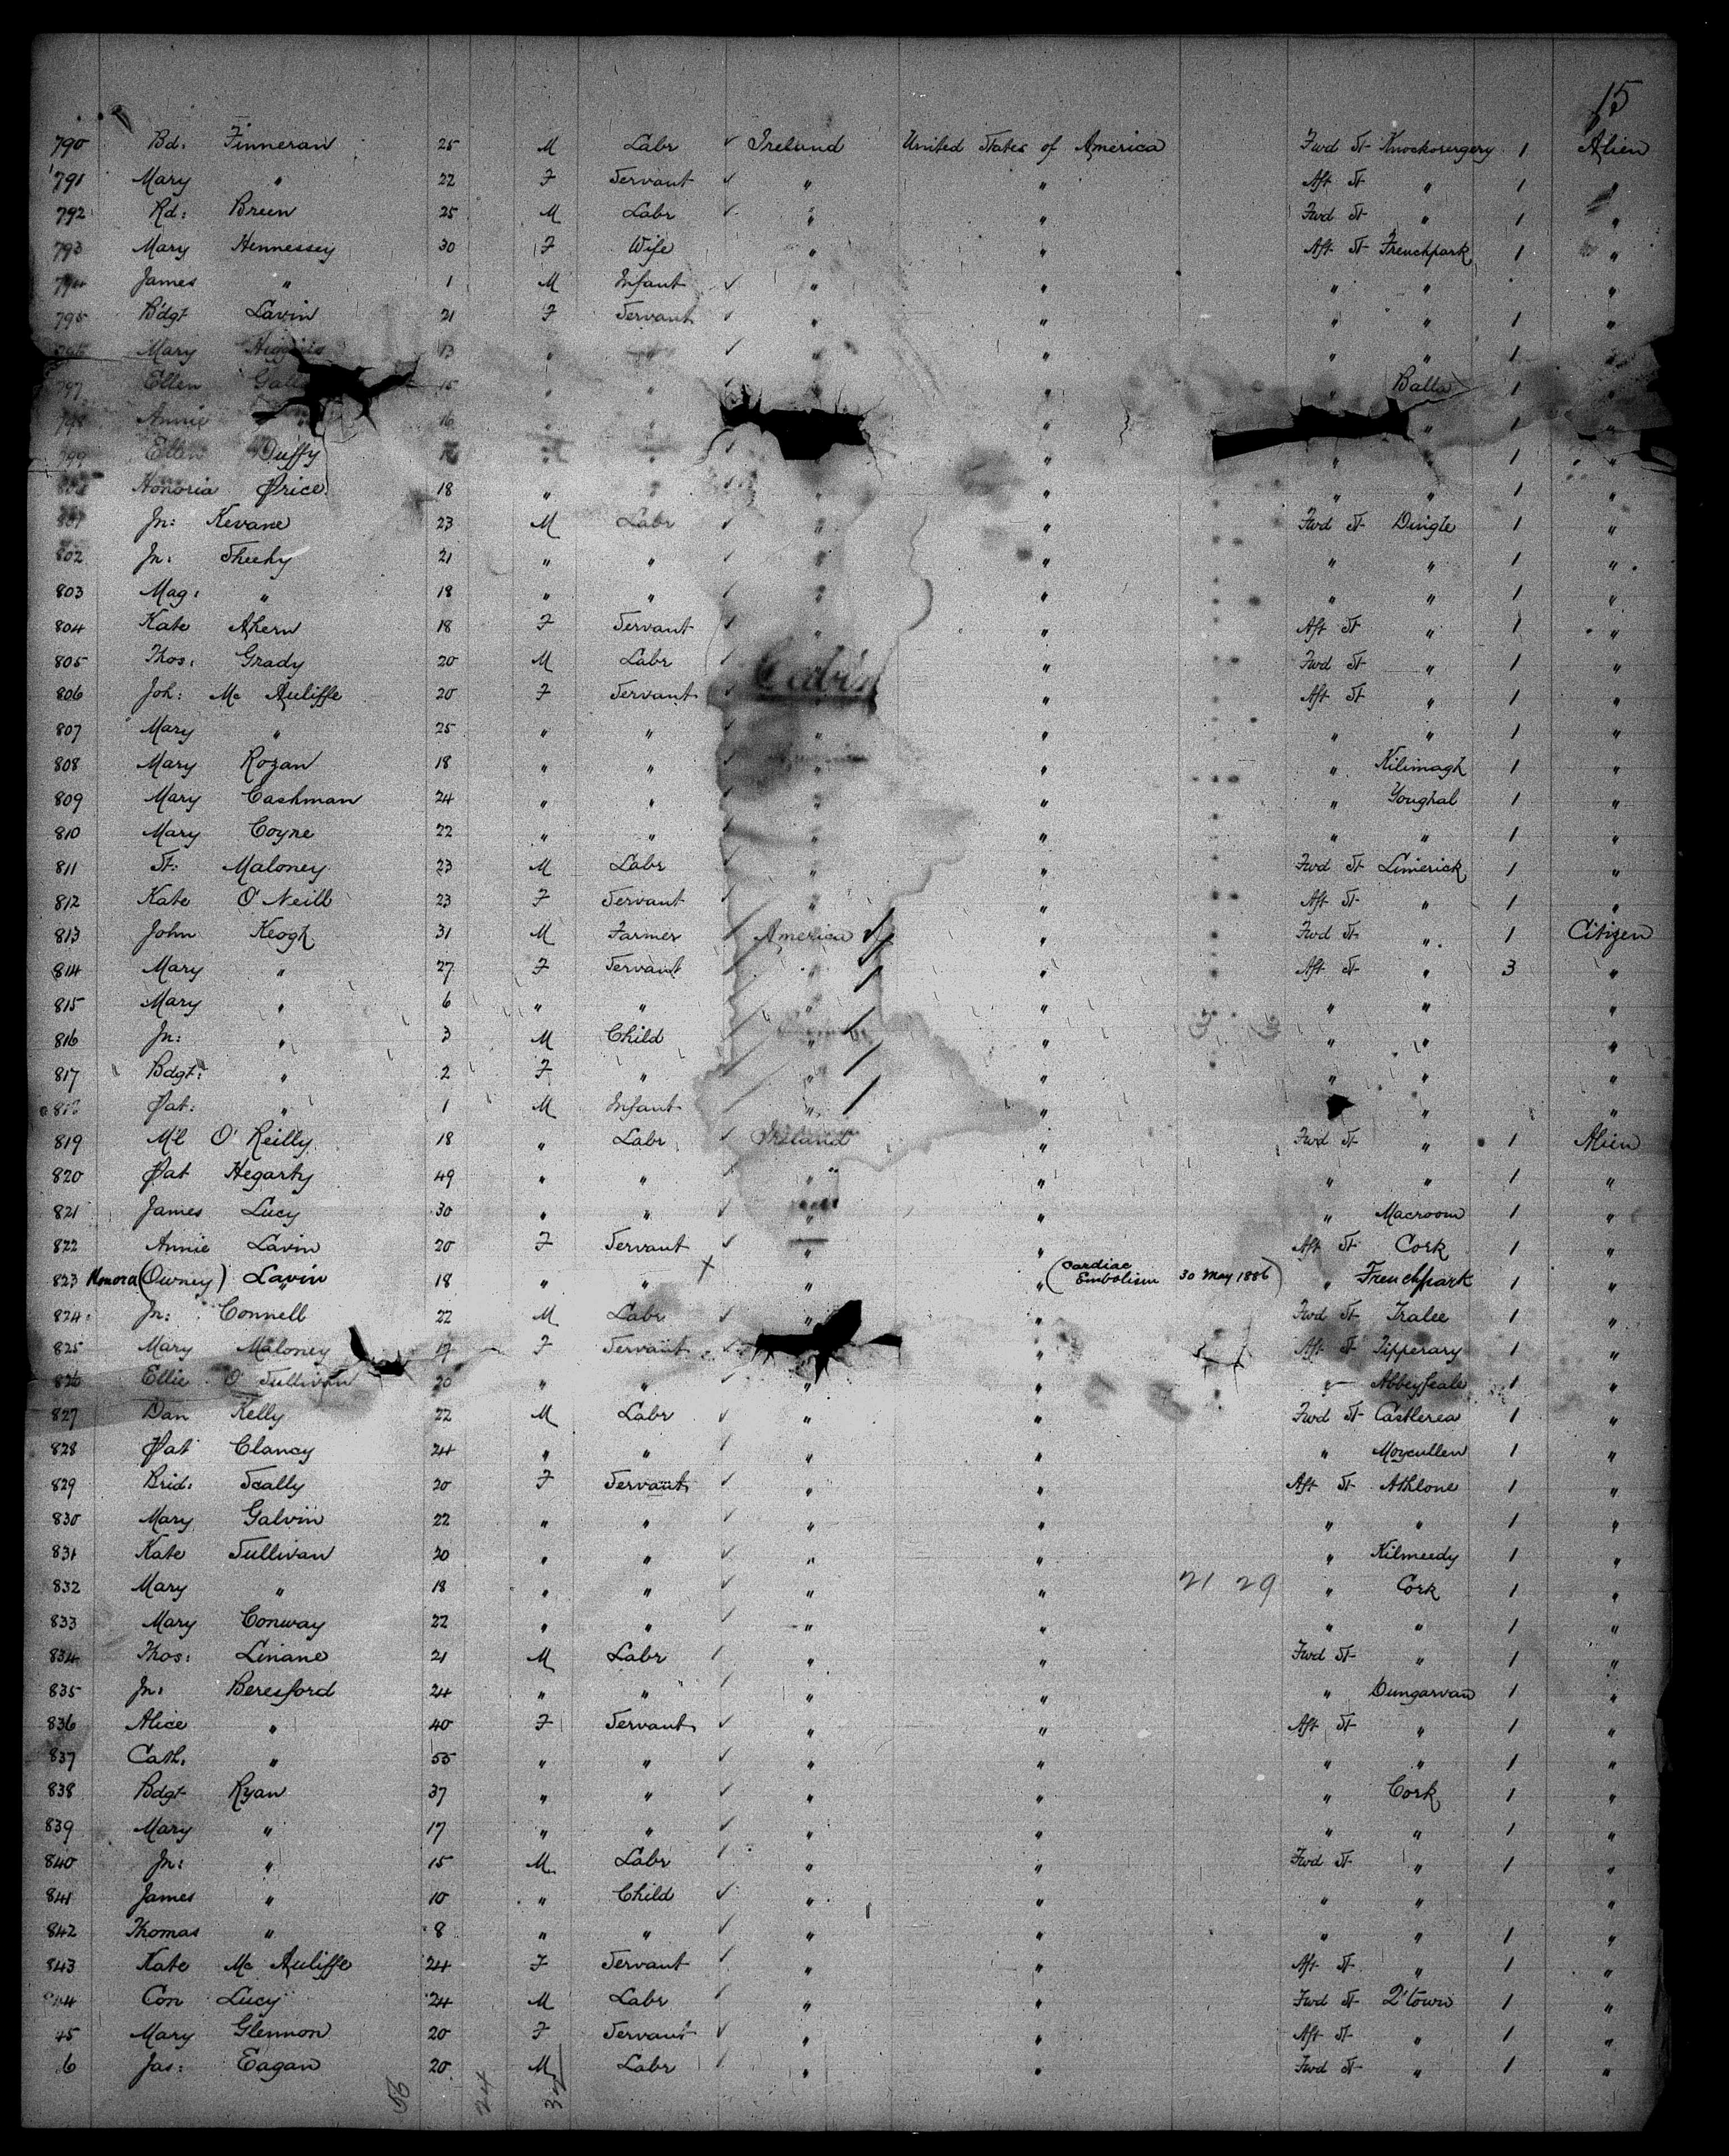 15
790 Bd: Finneran 25 M Labr ✓ Ireland United States of America Fwd St Knockcrergery 1 Alien
791 Mary " 22 F Servant ✓ " " Aft St " 1 "
792 Rd: Breen 25 M Labr ✓ " " Fwd St " 1 "
793 Mary Hennessey 30 F Wife " " Aft St Frenchpark 1 "
794 James " 1 M Infant ✓ " " " " "
795 Bdgt Lavin 21 F Servant ✓ " " " " 1 "
Mary Higgins 13 " " ✓ " " " " 1 "
797 Ellen 15 " " ✓ " " " Balla 1 "
798 Annie 16 " " " " 1 "
799 Ellen Duffy " " ✓ " " " 1 "
Honoria Price 18 " " ✓ " " " " 1 "
801 Jn: Kevane 23 M Labr ✓ " " Fwd St Dingle 1 "
802 Jn: Sheehy 21 " " ✓ " " " " 1 "
803 Mag: " 18 " " ✓ " " " " 1 "
804 Kate Ahern 18 F Servant ✓ " " Aft St " 1 "
805 Thos: Grady 20 M Labr ✓ " Fwd St " 1 "
806 Joh: Mc Auliffe 20 F Servant ✓ " " Aft St " 1 "
807 Mary " 25 " " ✓ " " " " 1 "
808 Mary Rogan 18 " " ✓ " " " Kilimagh 1 "
809 Mary Cashman 24 " " ✓ " " " Youghal 1 "
810 Mary Coyne 22 " " ✓ " " " " 1 "
811 St: Maloney 23 M Labr ✓ " " Fwd St Limerick 1 "
812 Kate O'Neill 23 F Servant ✓ " " Aft St " 1 "
813 John Keogh 31 M Farmer / America " Fwd St " 1 Citizen
814 Mary " 27 F Servant / " " Aft St " 3 "
815 Mary " 6 " " / " " " " "
816 Jn: " 3 M Child / " " " " "
817 Bdgt: " 2 F " / " " " " "
818 Pat: " 1 M Infant / " " " "
819 Ml O'Reilly 18 " Labr ✓ Ireland " Fwd St " 1 Alien
820 Pat Hegarty 49 " " ✓ " " " " 1 "
821 James Lucy 30 " " ✓ " " " Macroom 1 "
822 Annie Lavin 20 F Servant ✓ " " Aft St Cork 1 "
823 Honora (Owney) Lavin 18 " " X " " (Cardiac Embolism 30 May 1886) " Frenchpark 1 "
824 Jn: Connell 22 M Labr ✓ " " Fwd St Tralee 1 "
825 Mary Maloney 17 F Servant ✓ " Aft St Tipperary 1 "
826 Ellie O'Sullivan 20 " " ✓ " " " Abbeyfeale 1 "
827 Dan Kelly 22 M Labr ✓ " " Fwd St Castlerea 1 "
828 Pat Clancy 24 " " ✓ " " " Moycullen 1 "
829 Brid: Scally 20 F Servant ✓ " " Aft St Athlone 1 "
830 Mary Galvin 22 " " ✓ " " " " 1 "
831 Kate Sullivan 20 " " ✓ " " " Kilmeedy 1 "
832 Mary " 18 " " ✓ " " 21 29 " Cork 1 "
833 Mary Conway 22 " " ✓ " " " " 1 "
834 Thos: Linane 21 M Labr ✓ " " Fwd St " 1 "
835 Jn: Beresford 24 " " ✓ " " " Dungarvan 1 "
836 Alice " 40 F Servant ✓ " " Aft St " 1 "
837 Cath: " 55 " " ✓ " " " " 1 "
838 Bdgt Ryan 37 " " ✓ " " " Cork 1 "
839 Mary " 17 " " ✓ " " " " 1 "
840 Jn: " 15 M Labr ✓ " " Fwd St " 1 "
841 James " 10 " Child ✓ " " " " "
842 Thomas " 8 " " ✓ " " " " 1 "
843 Kate Mc Auliffe 24 F Servant ✓ " " Aft St " 1 "
44 Con Lucy 24 M Labr ✓ " " Fwd St Q'town 1 "
45 Mary Glennon 20 F Servant ✓ " " Aft St " 1 "
6 Jas: Eagan 20 M Labr ✓ " " Fwd St " 1 "
56 24 32